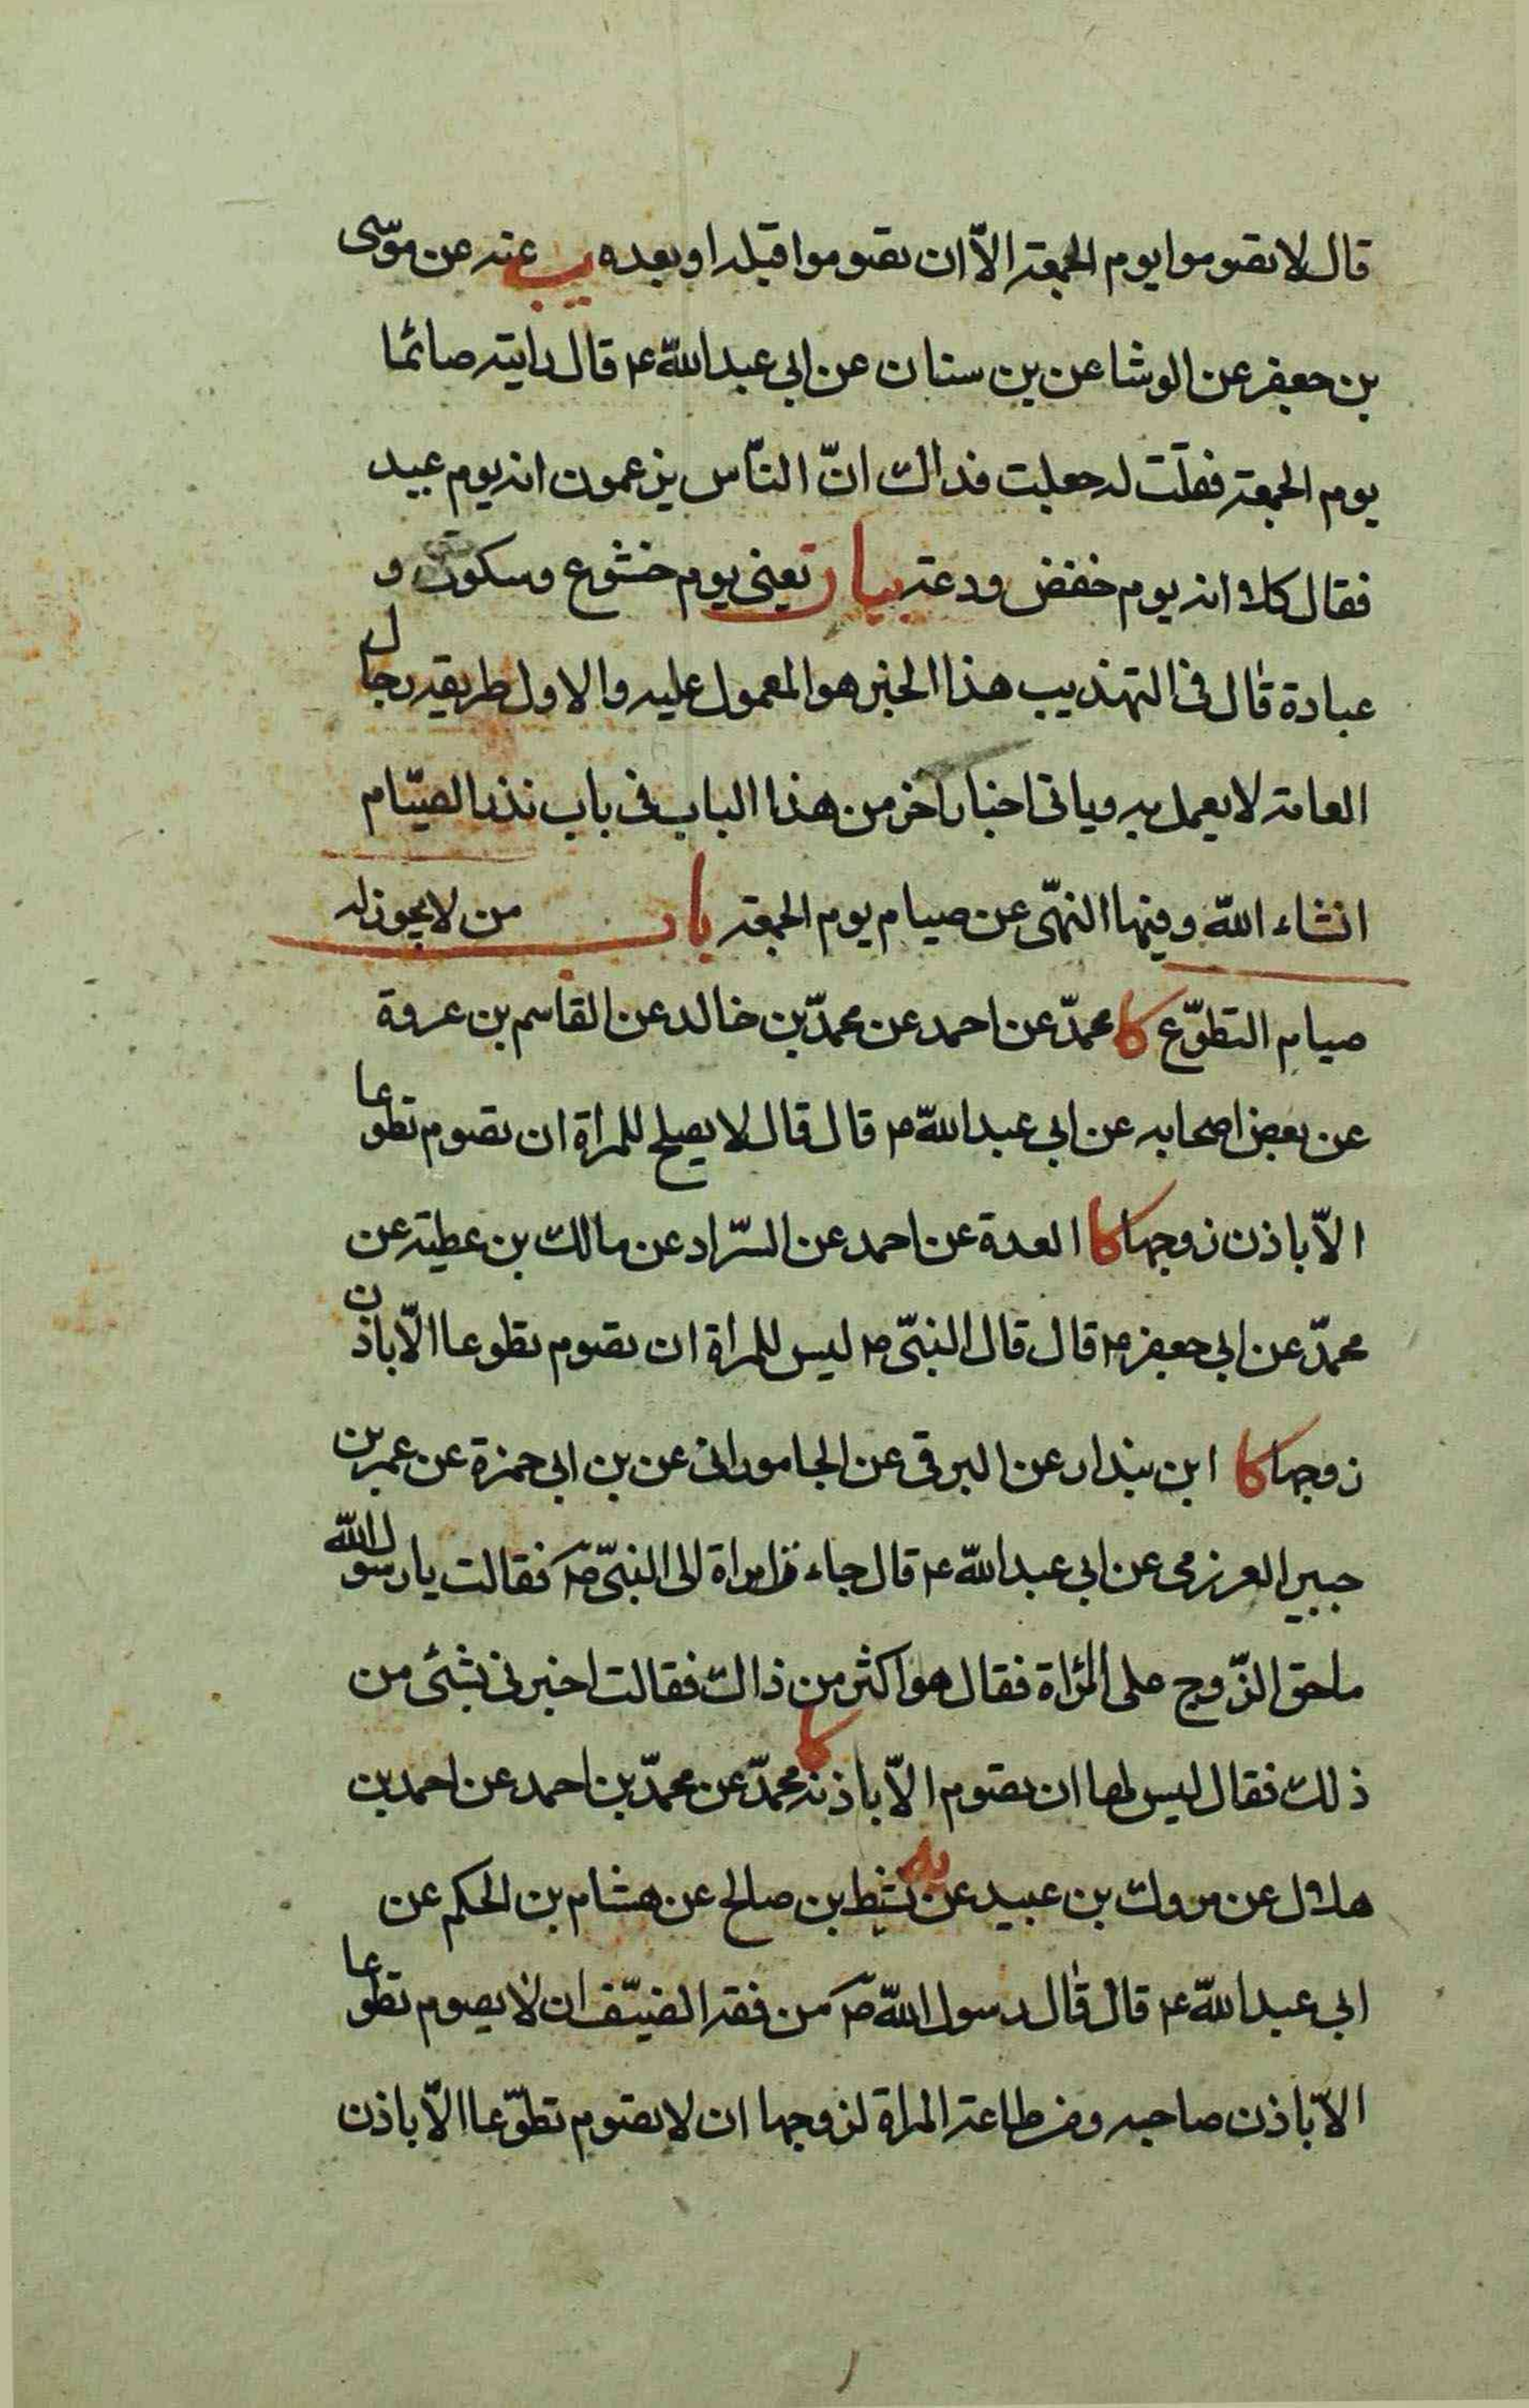 قال لا تصوموا يوم الجمعة الّا ان تصوموا قبله او بعده يب عنه عن موسى
بن جعفر عن الوشا عن بن سنان عن ابي عبد اللّه ع قال رايته صائما
يوم الجمعة فقلت له جعلت فداك انّ النّاس يزعمون انه يوم عيد
فقال كلا انه يوم خفض ودعة بيان تعني يوم خشوع وسكون و
عبادة قال في التهذيب هذا الخبر هو المعمول عليه والاول طريقه رجال
العامة لا يعمل به وياتي اخبار اخر من هذا الباب في باب نذر الصيّام
انشاء اللّه وفيها النهي عن صيام يوم الجمعة باب من لا يجوز له
صيام التطوّع كا محمدّ عن احمد عن محمدّ بن خالد عن القاسم بن عروة
عن بعض اصحابه عن ابي عبد اللّه ع قال قال لا يصلح للمراة ان تصوم تطوعا
الّا باذن زوجها كا العدة عن احمد عن السّراد عن مالك بن عطية عن
محمدّ عن ابي جعفر ع قال قال النبيّ ص ليس للمراة ان تصوم تطوعا الّا باذن
زوجها كا ابن بندار عن البرقي عن الجاموراني عن بن ابي حمزة عن عمر بن
جبير العرزمي عن ابي عبد اللّه ع قال جاءت امراة الى النبيّ ص فقالت يا رسول اللّه
ما حق الزّوج على المراة فقال هو اكثر من ذاك فقالت اخبرني بشئ من
ذلك فقال ليس لها ان تصوم الّا باذنه كا محمدّ عن محمدّ بن احمد عن احمد بن
هلال عن مروك بن عبيد عن يه نشيط بن صالح عن هشام بن الحكم عن
ابي عبد اللّه ع قال قال رسول اللّه ص من فقه الضيّف ان لا يصوم تطوعا
الّا باذن صاحبه ومن طاعة المراة لزوجها ان لا تصوم تطوّعا الّا باذن